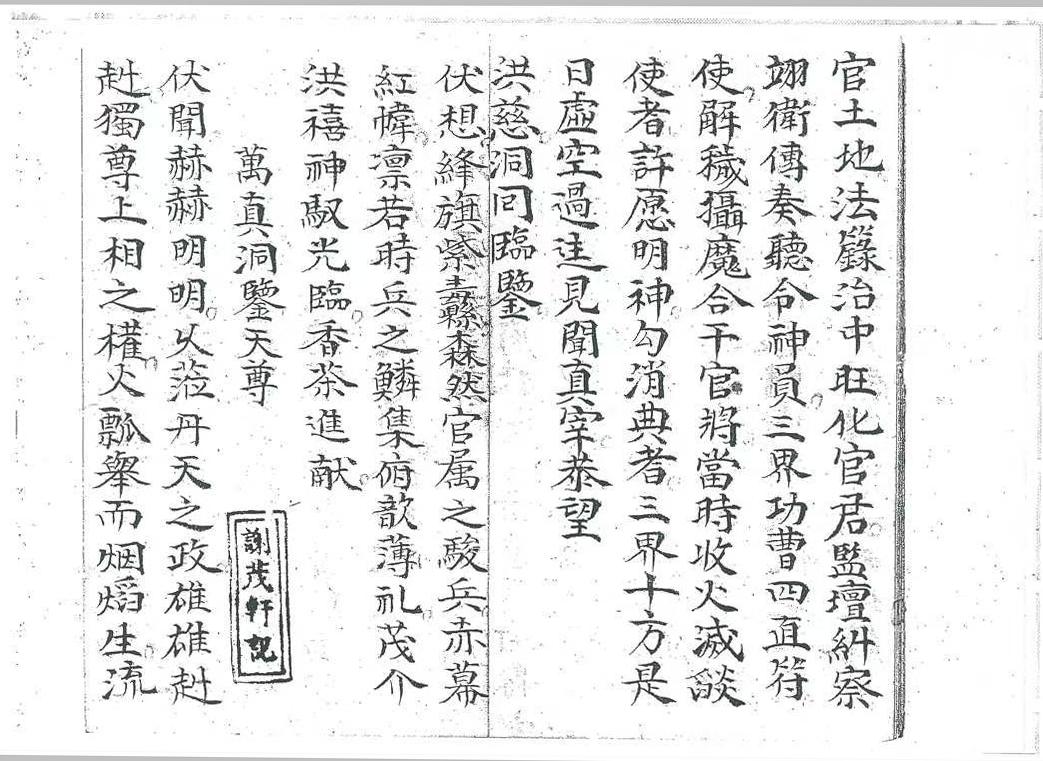 官土地法籙治中旺化官君監壇糾察
翊衛傳奏聽令神員三界功曹四直符
使解穢攝魔合干官將當時收火滅燄
使者許愿明神勾消典者三界十方是
日虛空過徃見聞真宰恭望
洪慈洞囘臨鑒
伏想絳旗紫纛森然官属之駿兵赤幕
紅幃凛若時兵之鱗集俯歆薄礼茂介
洪禧神馭光臨香茶進献
萬真洞鑒天尊
謝茂軒記
伏聞赫赫明明乆蒞丹天之政雄雄赳
赳獨尊上相之權火瓢舉而烟熖生流